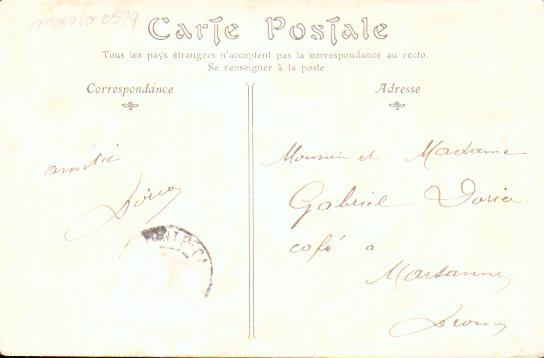 monaco 0529
Carte Postale
Tous les pays étrangers n'acceptent pas la correspondance au recto.
Se renseigner à la poste
Correspondance
Adresse
amitié
Monsieur et Madame
Gabriel Dorier
café a
Marsanne
Drome